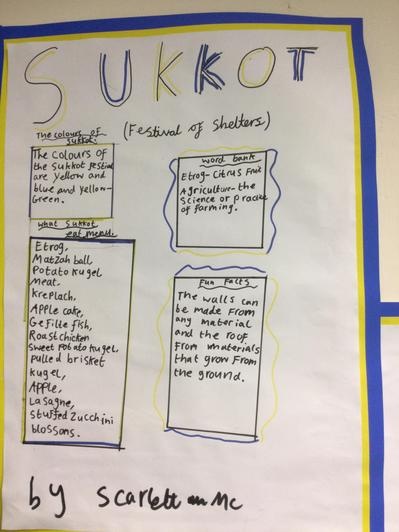 SUKKOT
(Festival of Shelters)
The colours of
Sukkot.
The colours of
the Sukkot festival
are yellow and
blue and yellow-
Green.
what Sukkot
eat menu.
Etrog,
Matzah ball
Potato kugel
meat,
Kreplach,
Apple cake,
Gefille fish,
Roast chicken
sweet potato kugel,
pulled brisket
kugel,
Apple,
Lasagne,
stuffed zucchini
blossons.
word bank
Etrog- Citrus Fruit
Agriculture- the
science or practice
of farming.
Fun Facts
The walls can
be made from
any material
and the roof
from materials
that grow from
the ground.
by Scarlett Mc